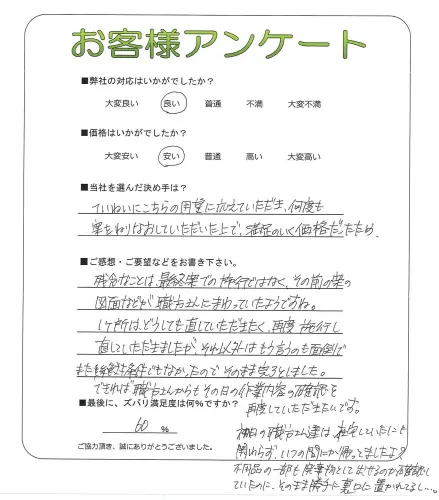 お客様アンケート
■弊社の対応はいかがでしたか?
大変良い 良い 普通 不満 大変不満
■価格はいかがでしたか?
大変安い 安い 普通 高い 大変高い
■当社を選んだ決め手は?
ていねいにこちらの用望に応えていただき、何度も
案をねりなおしていただいた上で、満足のいく価格だったため。
■ご感想・ご要望などをお書き下さい。
残念なことは、最終案での施行ではなく、その前の案の
図面などが職方さんにまわっていたようですね。
1ヶ所は、どうしても直していただきたく、再度施行し
直していただきましたが、それ以外はもう言うのも面倒で
また絶対条件でもなかったのでそのまま完了としました。
できれば職方さんからもその日の作業内容の確認を
再度していただきたいです。
■最後に、ズバリ満足度は何%ですか?
60 %
初日の職方さん達は、在宅していたにも
関わらず、いつの間にか帰ってましたよ?
不用品の一部も廃棄物として出せるのか確認し
ていたのに、そのまま勝手に裏口に置かれてるし…。
ご協力頂き、誠にありがとうございました。